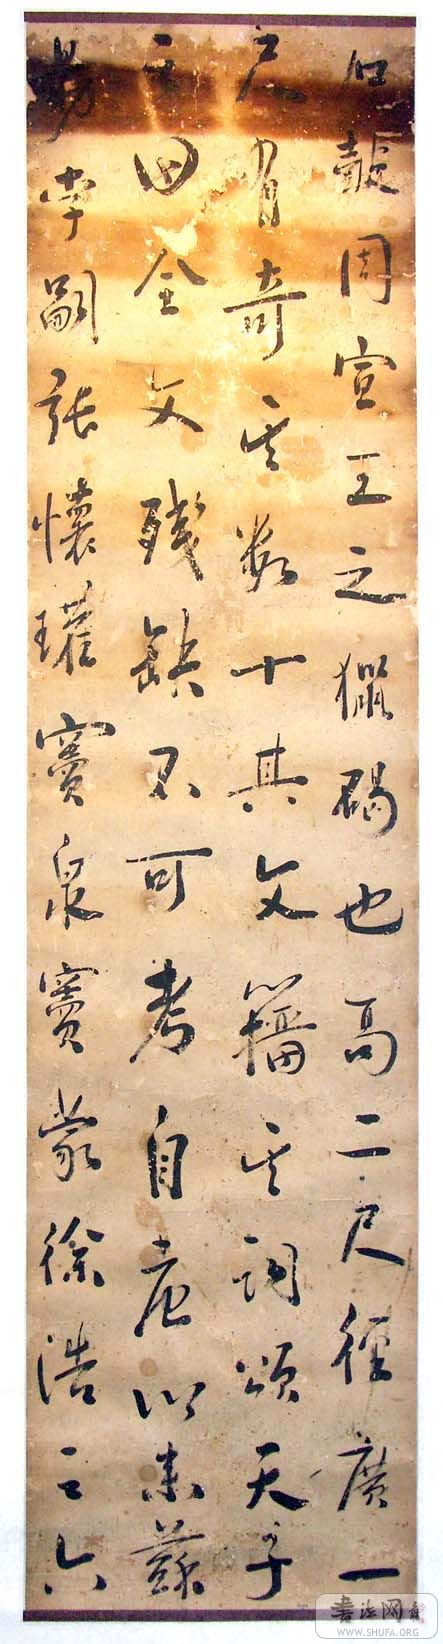 石鼓周宣王之獵碣也高二尺徑廣一
尺有奇其数十其文籀其詞頌天子
之田全文残缺不可考自唐以来蘇
勗李嗣張懷瓘竇臮竇蒙徐浩
書法网
WWW.SHUFA.ORG